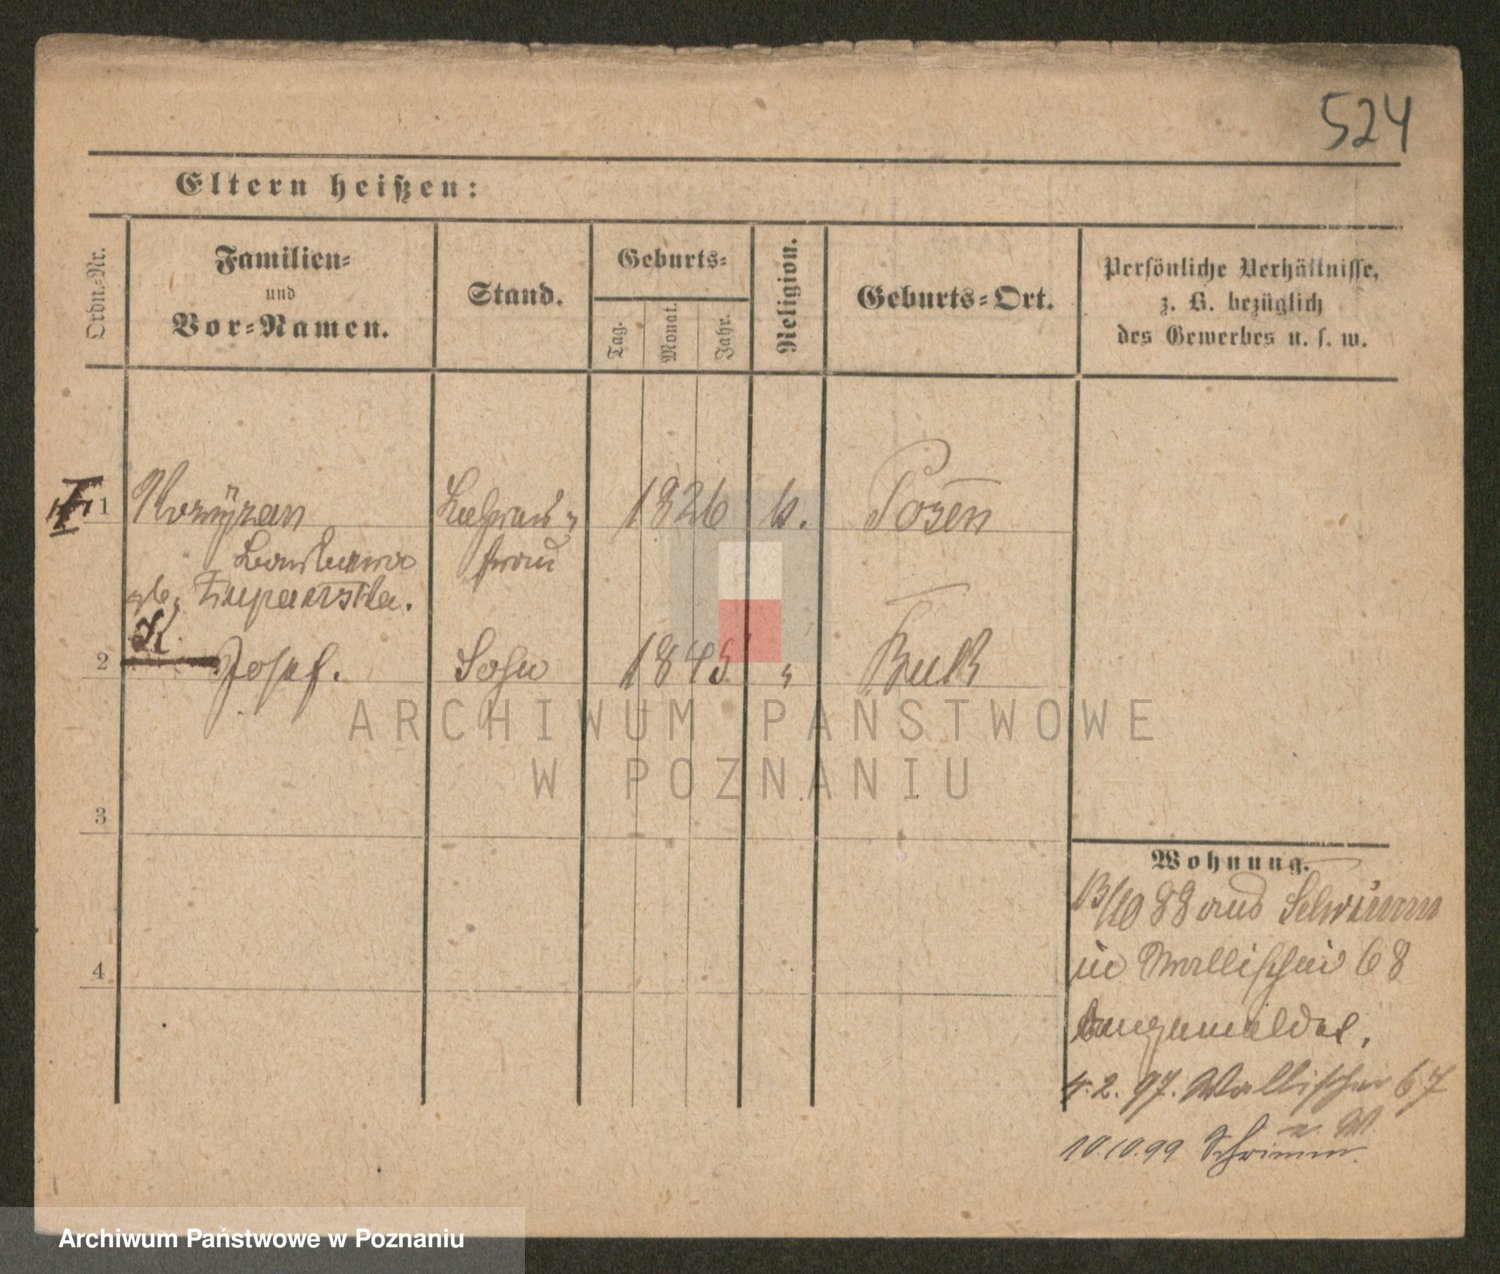 524
Eltern heißen:
Ordn.-Nr.
Familien-
und
Vor-Namen.
Stand.
Geburts-
Tag.
Monat.
Jahr.
Religion.
Geburts-Ort.
Persönliche Verhältnisse,
z. B. bezüglich
des Gewerbes u. s. w.
1
1826 k. Posen
frau
geb. Zupańska.
K.
2 Josef. Sohn 1845 " Buk
3
4
Wohnung.
88 aus Schrimm
in Wallischei 68
angemeldet.
4.2.97. Wallischei 67
n. W.
10.10.99 Schrimm.
ARCHIWUM PAŃSTWOWE
W POZNANIU
Archiwum Państwowe w Poznaniu